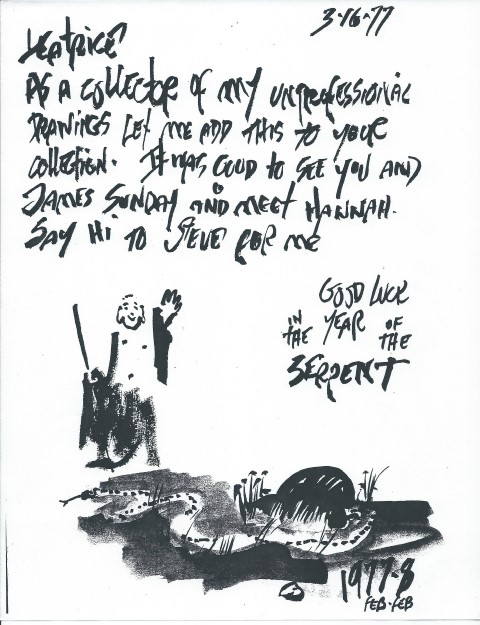 3-16-77
Beatrice
AS A COLLECTOR OF MY UNPROFESSIONAL
DRAWINGS LET ME ADD THIS TO YOUR
COLLECTION. IT WAS GOOD TO SEE YOU AND
JAMES SUNDAY AND MEET HANNAH.
SAY HI TO STEVE FOR ME
GOOD LUCK
IN THE YEAR OF THE
SERPENT
1977-8
FEB-FEB